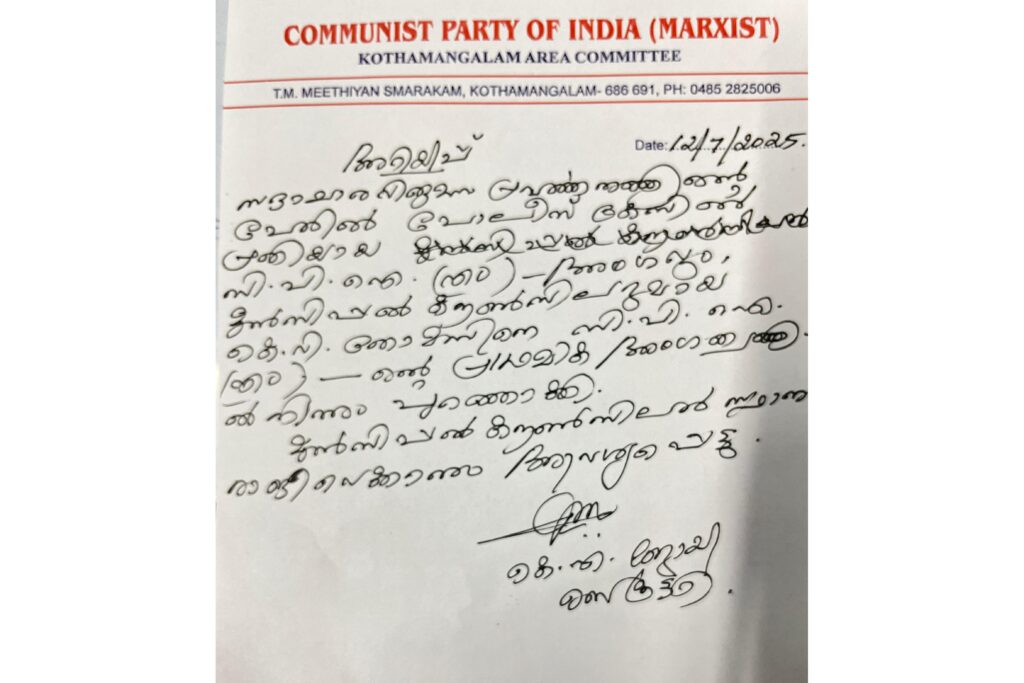 COMMUNIST PARTY OF INDIA (MARXIST)
KOTHAMANGALAM AREA COMMITTEE
T.M. MEETHIYAN SMARAKAM, KOTHAMANGALAM- 686 691, PH: 0485 2825006
Date: 12/7/2025.
അറിയിപ്പ്
സദാചാര വിരുദ്ധ പ്രവർത്തനത്തിൻ്റെ
പേരിൽ പോലീസ് കേസിൽ
പ്രതിയായ
സി.പി.ഐ.(എം) – അംഗവും,
മുൻസിപ്പൽ കൗൺസിലറുമായ
കെ.വി. തോമസിനെ സി.പി.ഐ.
(എം) – ൻ്റെ പ്രാഥമിക അംഗത്വത്തി
ൽ നിന്നും പുറത്താക്കി.
മുൻസിപ്പൽ കൗൺസിലർ സ്ഥാന
രാജിവെക്കാനും ആവശ്യപ്പെട്ടു.
കെ.എ. ജോയി
സെക്രട്ടറി.